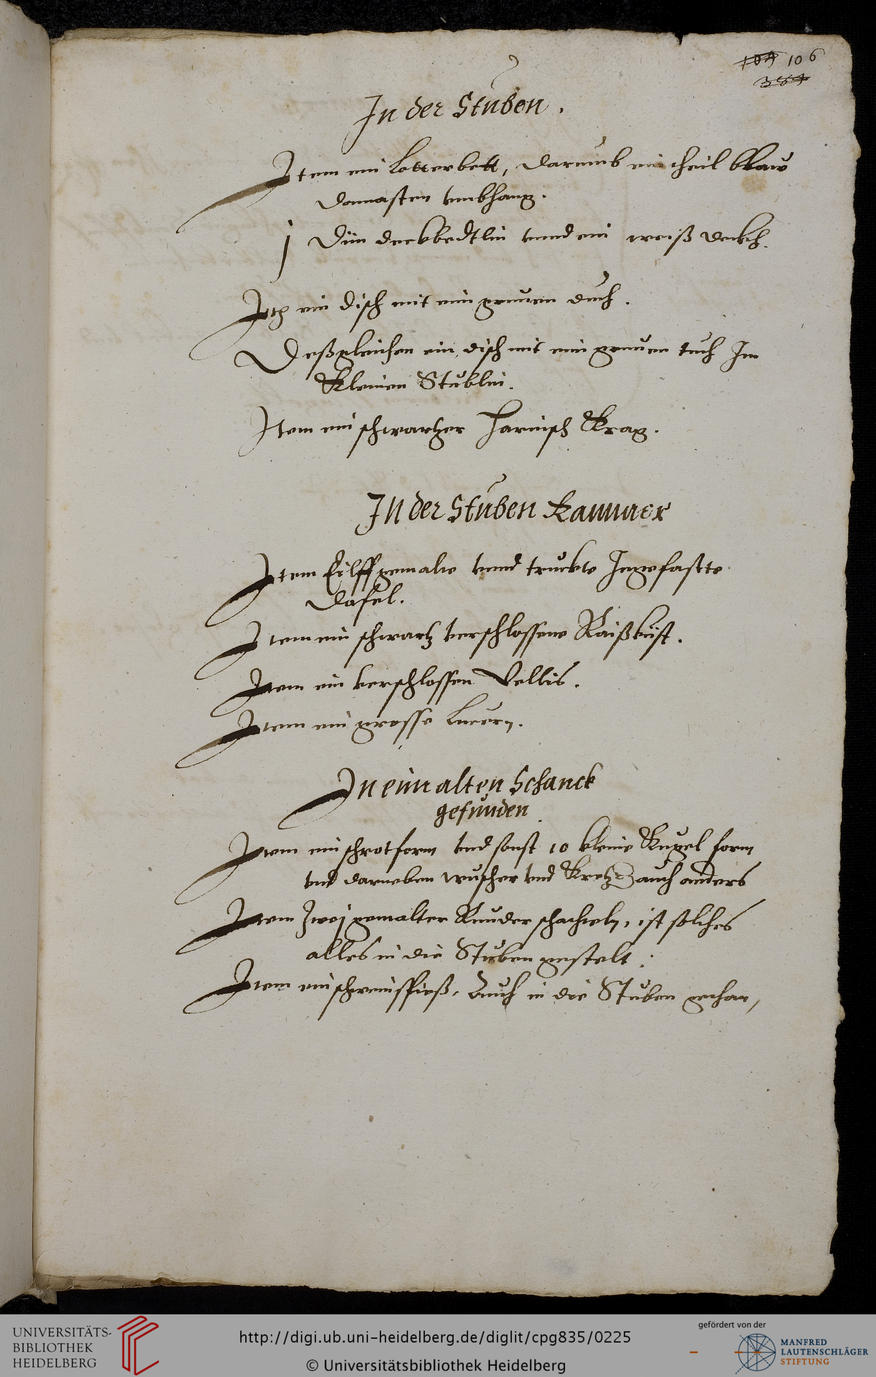 104 106
384
In der Stuben.
Item ein Lotterbett, darumb ein theil blaw
damasten umbhang.
j Dün deckbedtlin unnd ein weiß deckh.
Itē ein disch mit ein grunen duch.
Deßgleichen ein disch mit ein grunen tuch Im
kleinen Stublin.
Item ein schwartzer Harnisch Krag.
In der Stuben Kammer
Item Eilff gemalte unnd truckte Ingefaste
Dafel.
Item ein schwartz verschlossene Raißkist.
Item ein verschlossen Velliß.
Item ein grosse Lucern.
In eim alten Schanck
gefunden
Item ein schrotform und sonst 10 kleine Kugel form
und darneben wuscher und Kretzer auch anders
Item Zwej gemalter schachteln, ist solches
alles in die Stuben gestelt.
Item ein schweinspieß, Auch in die Stuben gethan,
UNIVERSITÄTS-
BIBLIOTHEK
HEIDELBERG
http://digi.ub.uni-heidelberg.de/diglit/cpg835/0225
© Universitätsbibliothek Heidelberg
gefördert von der
MANFRED
LAUTENSCHLÄGER
STIFTUNG